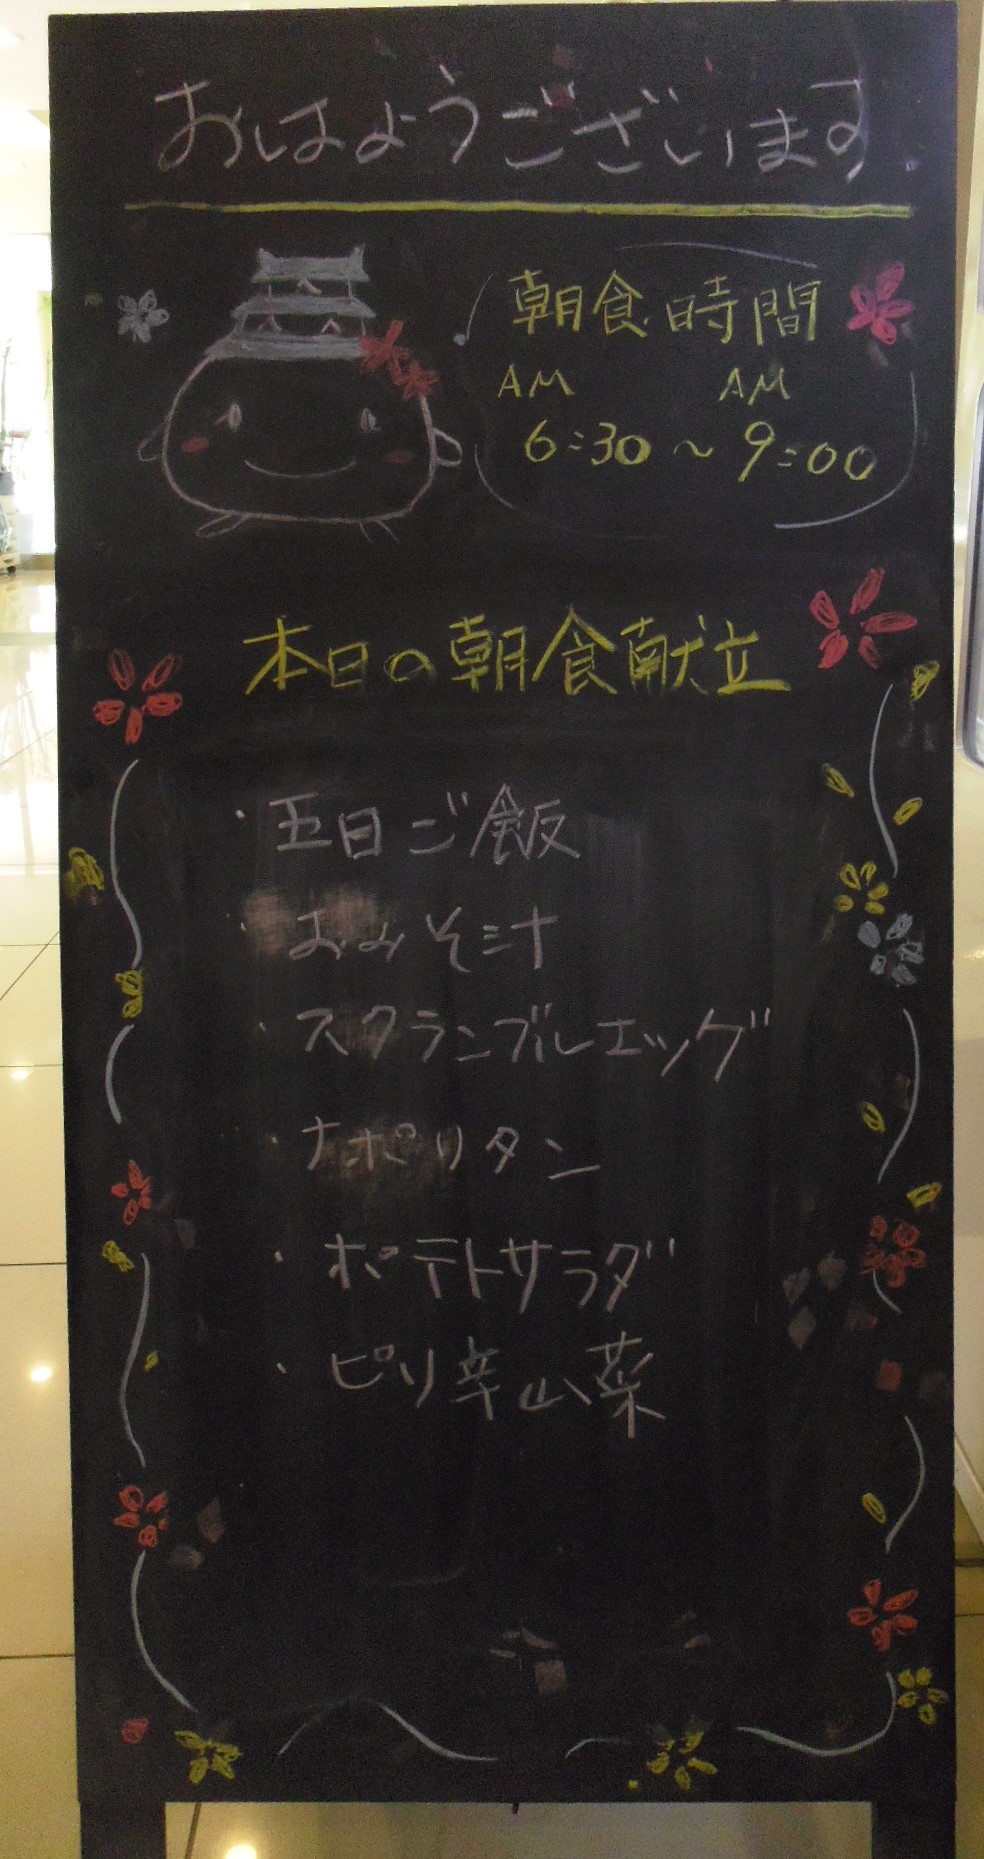 おはようございます
朝食時間
AM AM
6:30～9:00
本日の朝食献立
・五目ご飯
・おみそ汁
・スクランブルエッグ
・ナポリタン
・ポテトサラダ
・ピリ辛山菜